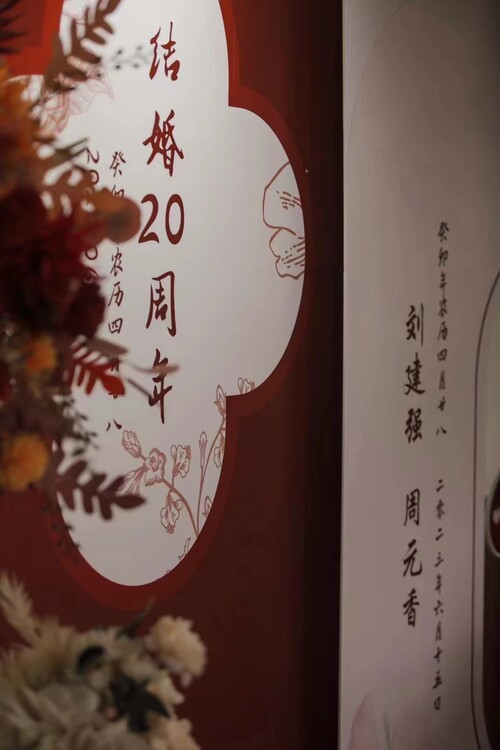 结婚20周年
癸卯 农历四月廿八
癸卯年农历四月廿八 二零二三年六月十五日
刘建强 周元香